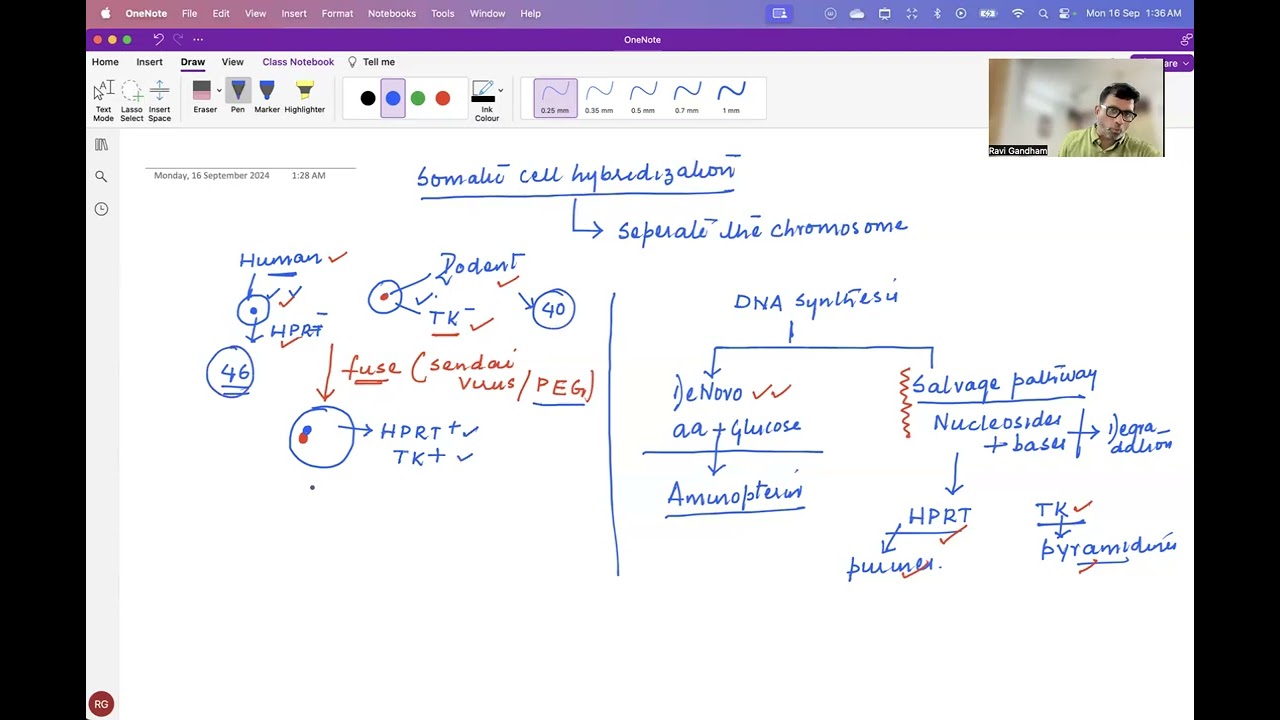 OneNote File Edit View Insert Format Notebooks Tools Window Help Mon 16 Sep 1:36 AM
OneNote
Home Insert Draw View Class Notebook Tell me
Text Mode
Lasso Select
Insert Space
Eraser
Pen
Marker
Highlighter
Ink Colour
0.25 mm 0.35 mm 0.5 mm 0.7 mm 1 mm
Ravi Gandham
Monday, 16 September 2024 1:28 AM
Somatic cell hybridization
Seperate the chromosome
Human
HPRT-
46
Rodent
TK-
40
fuse (Sendai
virus / PEG)
HPRT +
TK+
DNA synthesis
DeNovo
aa + Glucose
Aminopterin
Salvage pathway
Nucleosides
+ bases
Degra-
dation
HPRT
purines.
TK
pyramidines
RG